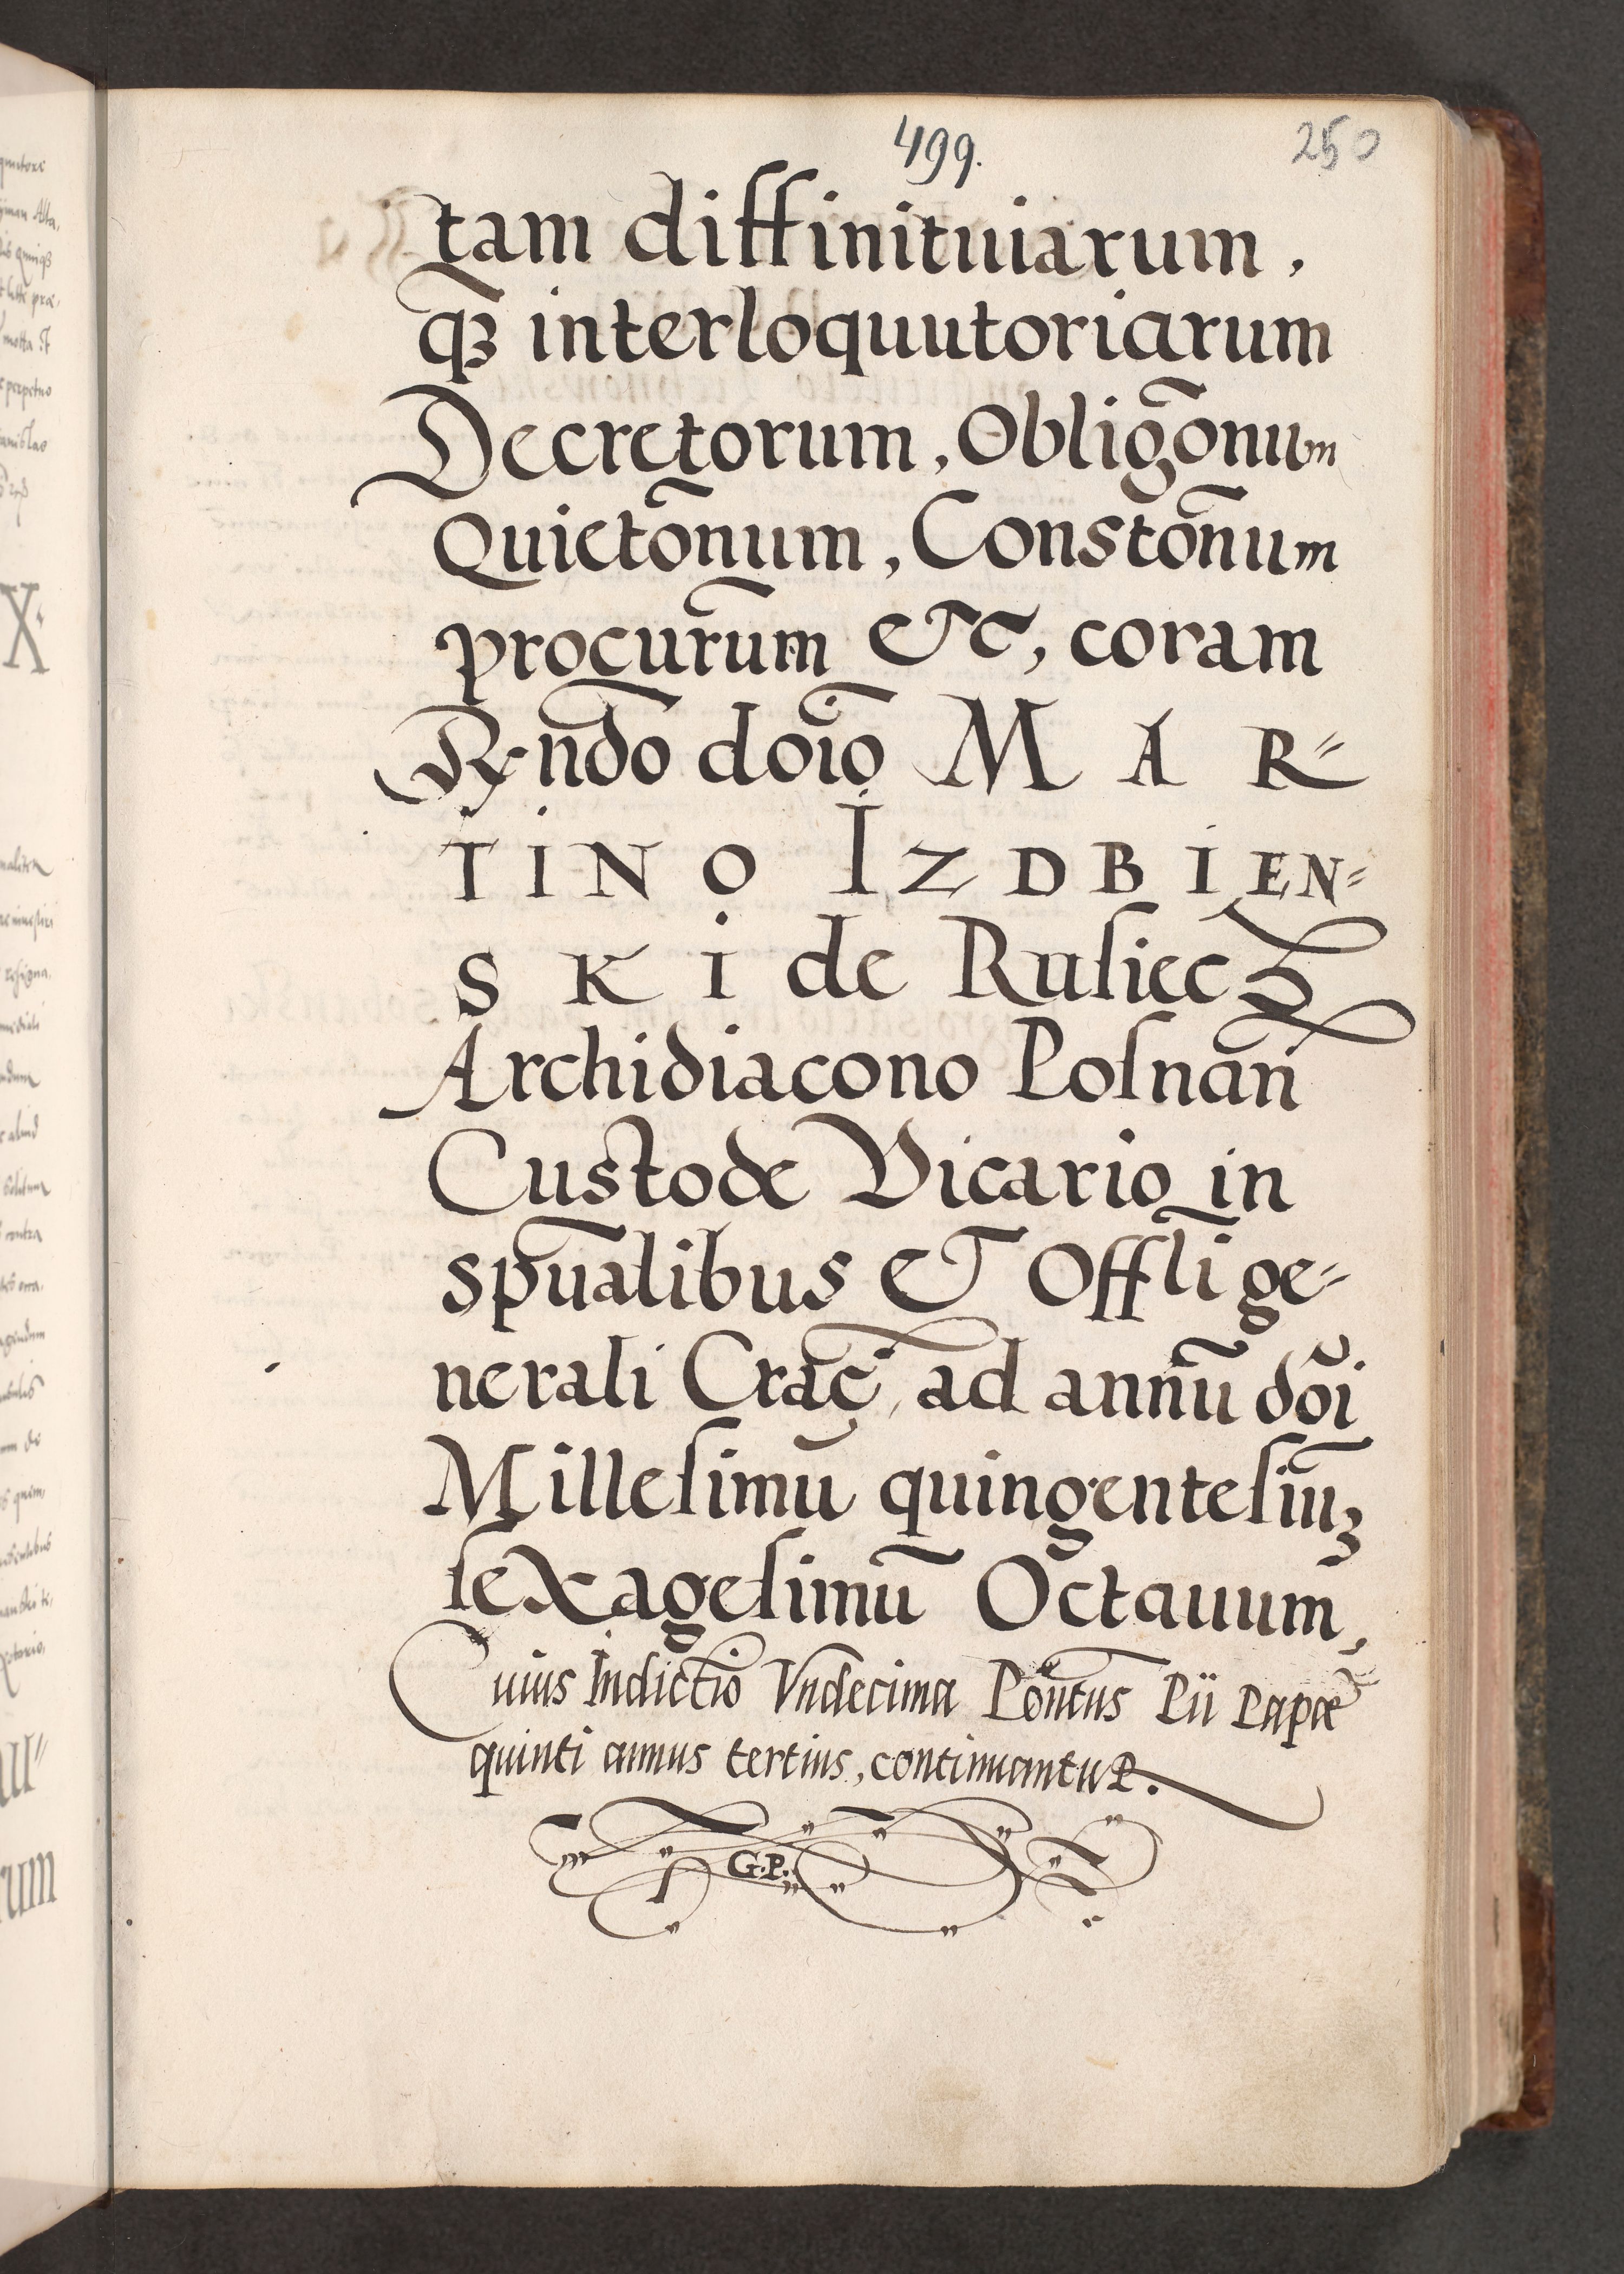 499.
250
tam diffinituiarum,
qꝫ interloquutoriarum
Decretorum, Oblig̃onum
Quiet̃onum, Const̃onum
procur̃um etc, coram
R. ndo doı̃o MAR=
TINO IZDBIEN=
SKI de Ruſiecz
Archidiacono Poſnan̄
Custode Vicario in
spũalibus et Offli̅ ge=
nerali Crac̄, ad annũ dõi
Milleſimũ quingenteſiũꝫ
ſexageſimũ Octauum,
Cuius Indictio Vndecima Pont̃us Pii Papæ
quinti annus tertius, continuantuR.
G.P.